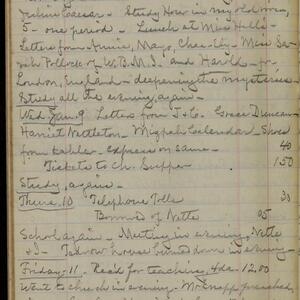 Julius Caesar - Study Hour in my old room,
5 - one period - Lunch at Miss Hills -
Letters from Annie, Mayo, Chas. Ely - Miss Sa-
rah Pollock of W.B.M.I. and Harold - fr.
London, England - deepening the mysteries -
Study all the evening again -
Wed. Jan. 9 Letters from J & Co. Grace Duncan -
Harriet Nettleton - Mizpah Calendar - Shoes
from Kahler - Express on same - 40
Tickets to Ch. Supper 1.50
Study again -
Thurs. 10 Telephone Tolls 30
Borrowed of Nette 05
School again - Meeting in evening, Nette
& I - house burned down in evening -
Friday - 11 - Rec'd for teaching, 12.00
Went to church in evening - Mr. Knapp preached,